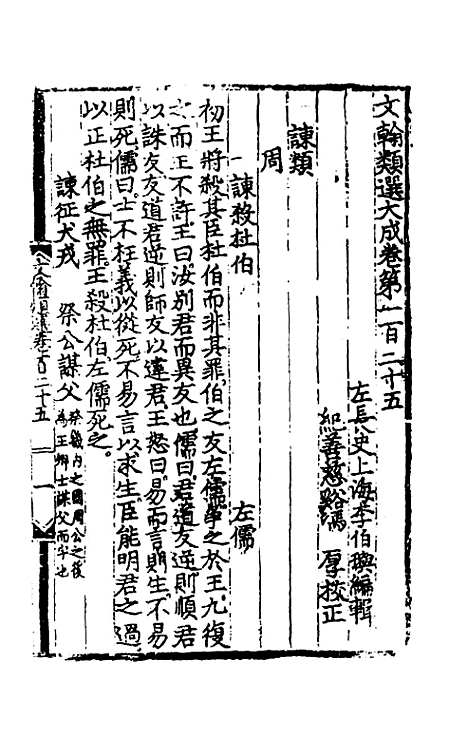 文翰類選大成卷第一百二十五
左長史上海李伯璵編輯
紀善慈谿馮厚校正
諫類
周
諫殺杜伯 左儒
初王將殺其臣杜伯而非其罪伯之友左儒爭之於王九復
之而王不許王曰汝別君而異友也儒曰君道友逆則順君
以誅友友道君逆則師友以違君王怒曰易而言則生不易
則死儒曰士不枉義以從死不易言以求生臣能明君之過
以正杜伯之無罪王殺杜伯左儒死之
諫征犬戎 祭公謀父 祭畿内之國周公之後
為王卿士謀父而字也
文翰類選卷一百二十五
一